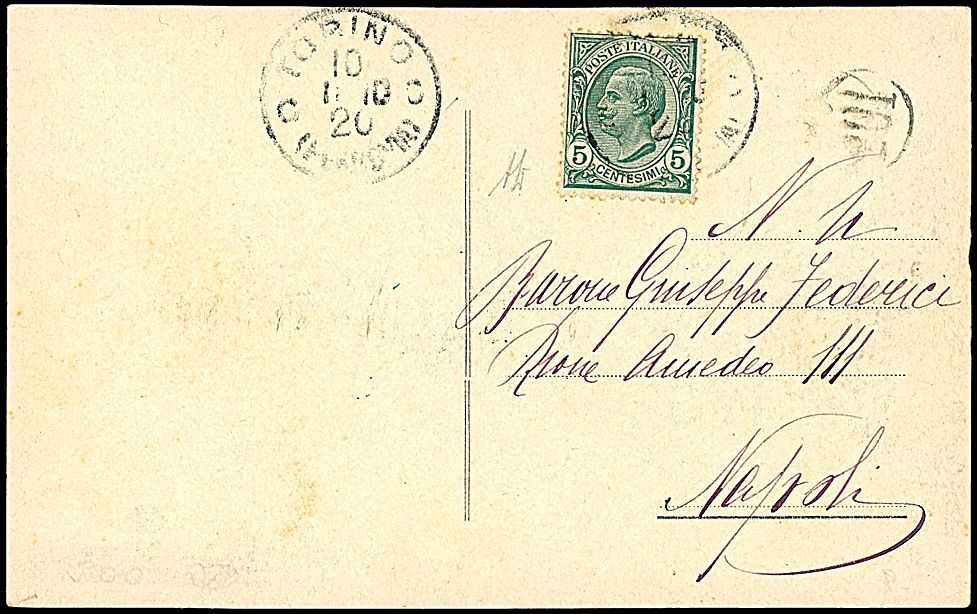 TORINO
10
11 10
20
(FERROVIA)
POSTE ITALIANE
5 CENTESIMI 5
N. h
Barone Giuseppe Federici
Rione Amedeo 111
Napoli